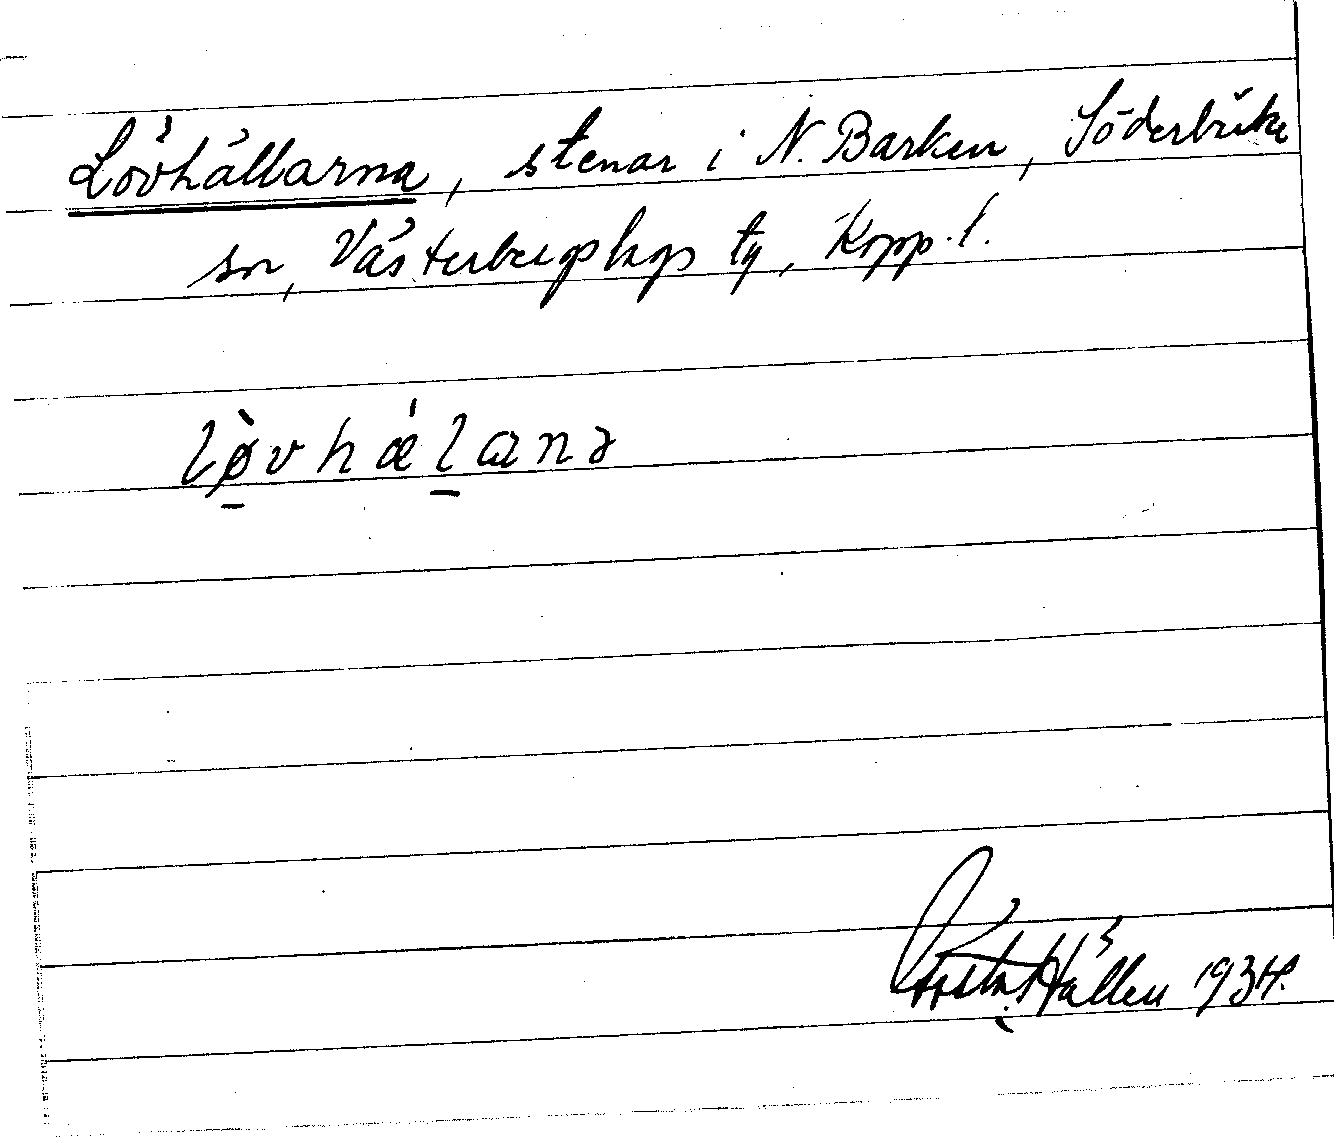 Lövhällarna, stenar i N. Barken, Söderbärke
sn, Västerbergslags tg, Kopp. l.
lø̀vhæ̀lanə
Gösta Hällen 1934.